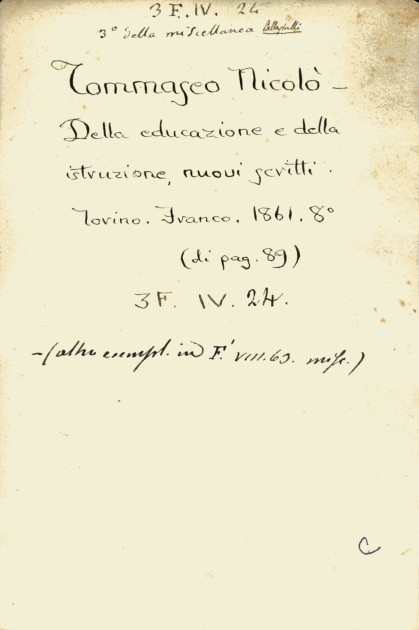 3 F. IV. 24
3° della miscellanea
Tommaseo Nicolò -
Della educazione e della
istruzione, nuovi scritti.
Torino. Franco. 1861. 8°
(di pag. 89)
3 F. IV. 24.
- (altro esempl. in F.' VIII. 63. misc.)
C